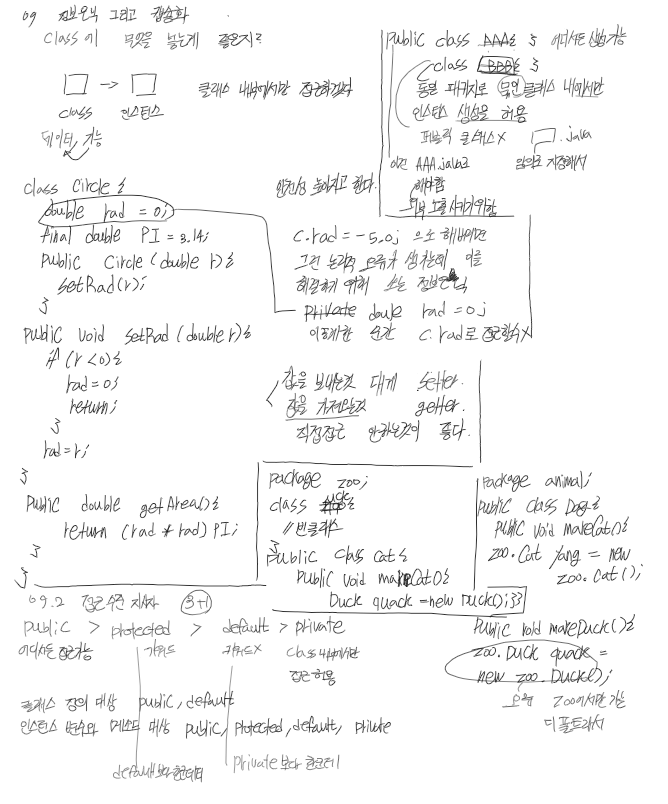 09 정보은닉 그리고 캡슐화
class에 무엇을 넣는게 좋은지?
□ → □
class 인스턴스
데이터, 기능
클래스 내부에서만 접근하겠다
안전성 높아지고 한다.
class Circle {
double rad = 0;
final double PI = 3.14;
Public Circle (double r) {
setRad(r);
}
Public void setRad (double r) {
if (r < 0) {
rad = 0;
return;
}
rad = r;
}
Public double getArea() {
return (rad * rad) PI;
}
}
Public class AAA { } 어디서든 생성가능
class BBB { }
동일 패키지로 묶인 클래스 내에서만
인스턴스 생성을 허용
퍼블릭 클래스 X
□.java
이건 AAA.java로
해야함
임의로 지정해서
외부 노출시키기위함
c.rad = -5.0; 으로 해버리면
그런 논리적 오류가 생기는데 이를
해결하기 위해 쓰는 정보은닉
Private double rad = 0;
이렇게한 순간 c.rad로 접근할수X
값을 보내는것 대게 setter.
값을 가져오는것 getter.
직접접근 안하는것이 좋다.
package zoo;
class Duck {
// 빈클래스
}
Public class Cat {
Public void makeCat() {
Duck quack = new Duck(); }}
Package animal;
Public class Dog {
Public void makeCat() {
zoo.Cat yang = new
zoo.Cat();
Public void makeDuck() {
zoo.Duck quack =
new zoo.Duck();
오류 zoo에서만 가능
디폴트라서
09.2 접근수준 지시자 3+1
Public > protected > default > private
어디서든 접근가능 키워드 키워드X Class 내부에서만
접근허용
클래스 정의 대상 public, default
인스턴스 변수와 메소드 대상 public, protected, default, private
default보다 한단계더
private보다 한단계